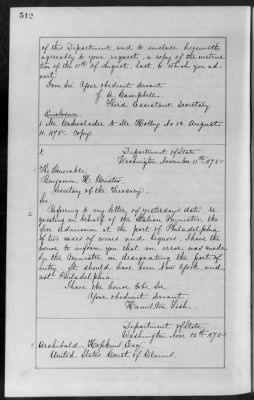 512
of this Department, and to enclose herewith
agreeably to your request, a copy of the instruc
tion of the 11th of August, last, to which you ad
vert.
I am Sir Your obedient servant
J. A. Campbell
Third Assistant Secretary.
Enclosure
1. Mr Cadwalader to Mr Holley No 12. August
11. 1875. Copy.
Department of State
Washington November 11th 1875.
The Honorable
Benjamin H. Bristow,
Secretary of the Treasury.
Sir
Referring to my letter of yesterday's date, re
questing in behalf of the Italian Minister, the
free admission at the Port of Philadelphia
of two cases of wines and liquors, I have the
honor to inform you that an error was made
by the Minister in designating the port of
entry. It should have been New York and
not Philadelphia.
I have the honor to be Sir,
Your obedient servant
Hamilton Fish.
Department of State,
Washington Nov 12th 1875
Archibald Hopkins Esq
United States Court of Claims.